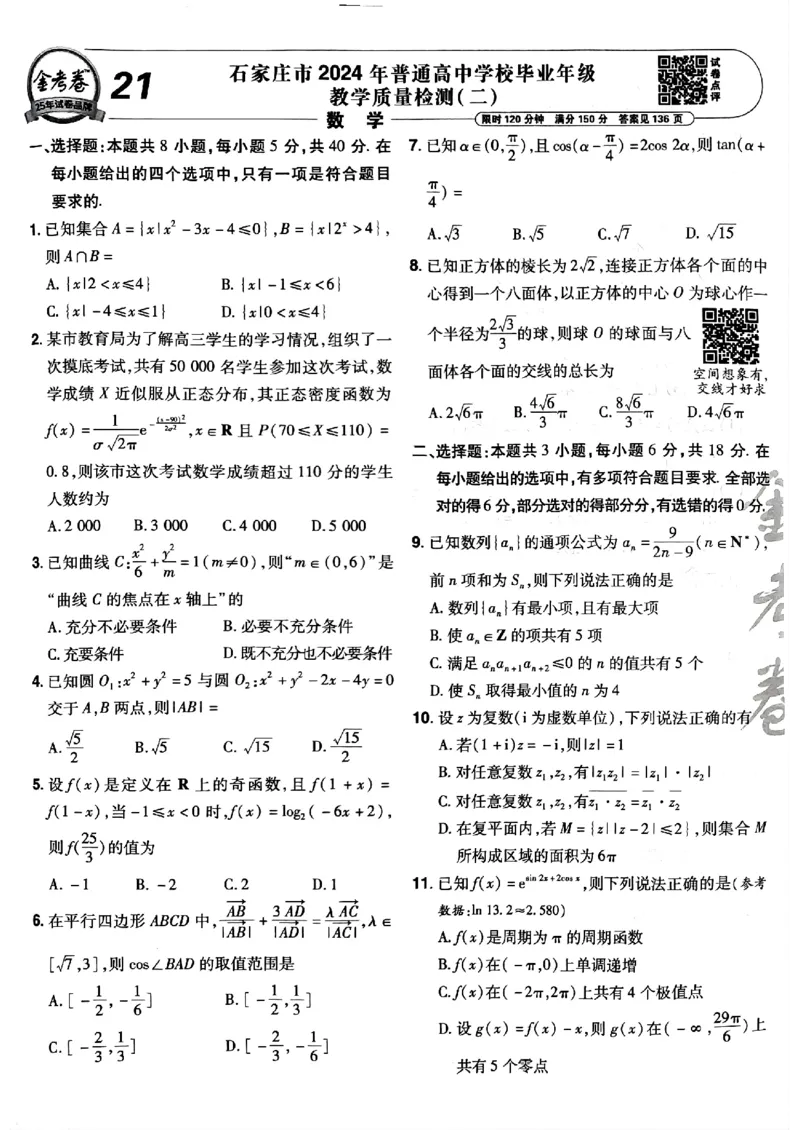 金考卷
25年试卷品牌
21
石家庄市 2024 年普通高中学校毕业年级
教学质量检测(二)
试卷点评
数 学
限时120分钟 满分150分 答案见136页
一、选择题:本题共 8 小题,每小题 5 分,共 40 分. 在
每小题给出的四个选项中,只有一项是符合题目
要求的.
1. 已知集合 A = {x|x² - 3x - 4 ≤ 0}, B = {x|2ˣ > 4},
则 A∩B =
A. {x|2 < x ≤ 4} B. {x| -1 ≤ x < 6}
C. {x| -4 ≤ x ≤ 1} D. {x|0 < x ≤ 4}
2. 某市教育局为了解高三学生的学习情况,组织了一
次摸底考试,共有 50 000 名学生参加这次考试,数
学成绩 X 近似服从正态分布,其正态密度函数为
f(x) = 1/(σ√(2π)) e^(-(x-90)²/(2σ²)), x∈R 且 P(70≤X≤110) =
0.8,则该市这次考试数学成绩超过 110 分的学生
人数约为
A. 2 000 B. 3 000 C. 4 000 D. 5 000
3. 已知曲线 C: x²/6 + y²/m = 1(m≠0),则“m∈(0,6)”是
“曲线 C 的焦点在 x 轴上”的
A. 充分不必要条件 B. 必要不充分条件
C. 充要条件 D. 既不充分也不必要条件
4. 已知圆 O₁:x² + y² = 5 与圆 O₂:x² + y² - 2x - 4y = 0
交于 A,B 两点,则|AB| =
A. √5/2 B. √5 C. √15 D. √15/2
5. 设 f(x) 是定义在 R 上的奇函数,且 f(1 + x) =
f(1 - x),当 -1≤x<0 时,f(x) = log₂( -6x + 2),
则 f(25/3) 的值为
A. -1 B. -2 C. 2 D. 1
6. 在平行四边形 ABCD 中, AB→/|AB→| + 3AD→/|AD→| = λAC→/|AC→|, λ∈
[√7,3],则 cos∠BAD 的取值范围是
A. [ -1/2, -1/6] B. [ -1/2, 1/3]
C. [ -2/3, 1/3] D. [ -2/3, -1/6]
7. 已知 α∈(0, π/2),且 cos(α - π/4) = 2cos 2α,则 tan(α +
π/4) =
A. √3 B. √5 C. √7 D. √15
8. 已知正方体的棱长为 2√2,连接正方体各个面的中
心得到一个八面体,以正方体的中心 O 为球心作一
个半径为 2√3/3 的球,则球 O 的球面与八
面体各个面的交线的总长为
空间想象有,
交线才好求
A. 2√6π B. 4√6/3 π C. 8√6/3 π D. 4√6π
二、选择题:本题共 3 小题,每小题 6 分,共 18 分. 在
每小题给出的选项中,有多项符合题目要求. 全部选
对的得 6 分,部分选对的得部分分,有选错的得 0 分.
9. 已知数列{aₙ}的通项公式为 aₙ = 9/(2n - 9) (n∈N*),
前 n 项和为 Sₙ,则下列说法正确的是
A. 数列{aₙ}有最小项,且有最大项
B. 使 aₙ∈Z 的项共有 5 项
C. 满足 aₙaₙ₊₁aₙ₊₂≤0 的 n 的值共有 5 个
D. 使 Sₙ 取得最小值的 n 为 4
10. 设 z 为复数(i 为虚数单位),下列说法正确的有
A. 若(1 + i)z = -i,则|z| = 1
B. 对任意复数 z₁,z₂,有|z₁z₂| = |z₁|·|z₂|
C. 对任意复数 z₁,z₂,有 z̅₁̅·̅z̅₂̅ = z̅₁·z̅₂
D. 在复平面内,若 M = {z||z - 2|≤2},则集合 M
所构成区域的面积为 6π
11. 已知 f(x) = e^(sin 2x + 2cos x),则下列说法正确的是(参考
数据:ln 13.2≈2.580)
A. f(x)是周期为 π 的周期函数
B. f(x)在( -π,0)上单调递增
C. f(x)在( -2π,2π)上共有 4 个极值点
D. 设 g(x) = f(x) - x,则 g(x)在( -∞, 29π/6)上
共有 5 个零点
金考卷